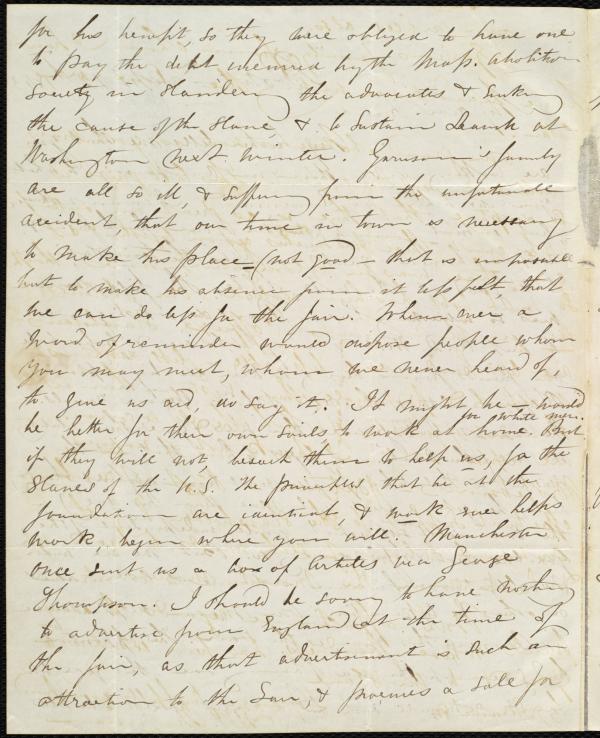 for his benefit, so they were obliged to have one
to pay the debt incurred by the Mass. Abolition
Society in slandering the advocates & sinking
the cause of the Slave, & to sustain Leavitt at
Washington next winter. Garrison's family
are all so ill, & suffering from the unfortunate
accident, that our time in town is necessary
to make his place (not good - that is impossible
but to make his absence from it less felt, that
we can do less for the fair. Whenever a
word of reminder would dispose people whom
you may meet, whom we never heard of,
to give us aid, do say it. It might be - would
for white men.
be better for their own souls, to work at home. But
if they will not, beseech them to help us, for the
Slaves of the U.S. The principles that lie at the
foundation are identical, & work ever helps
work, begin where you will. Manchester
once sent us a box of articles via George
Thompson. I should be sorry to have nothing
to advertise from England at the time of
the fair, as that advertisement is such an
attraction to the Fair, & procures a sale for